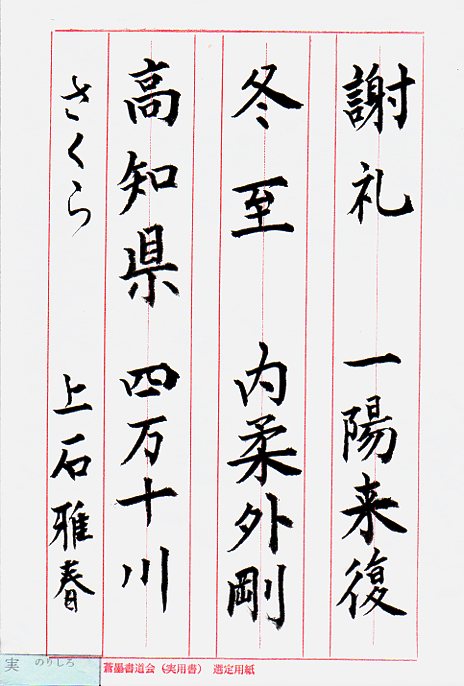 謝礼 一陽来復
冬至 内柔外剛
高知県 四万十川
さくら 上石雅春
実 のりしろ
蒼墨書道会(実用書) 選定用紙